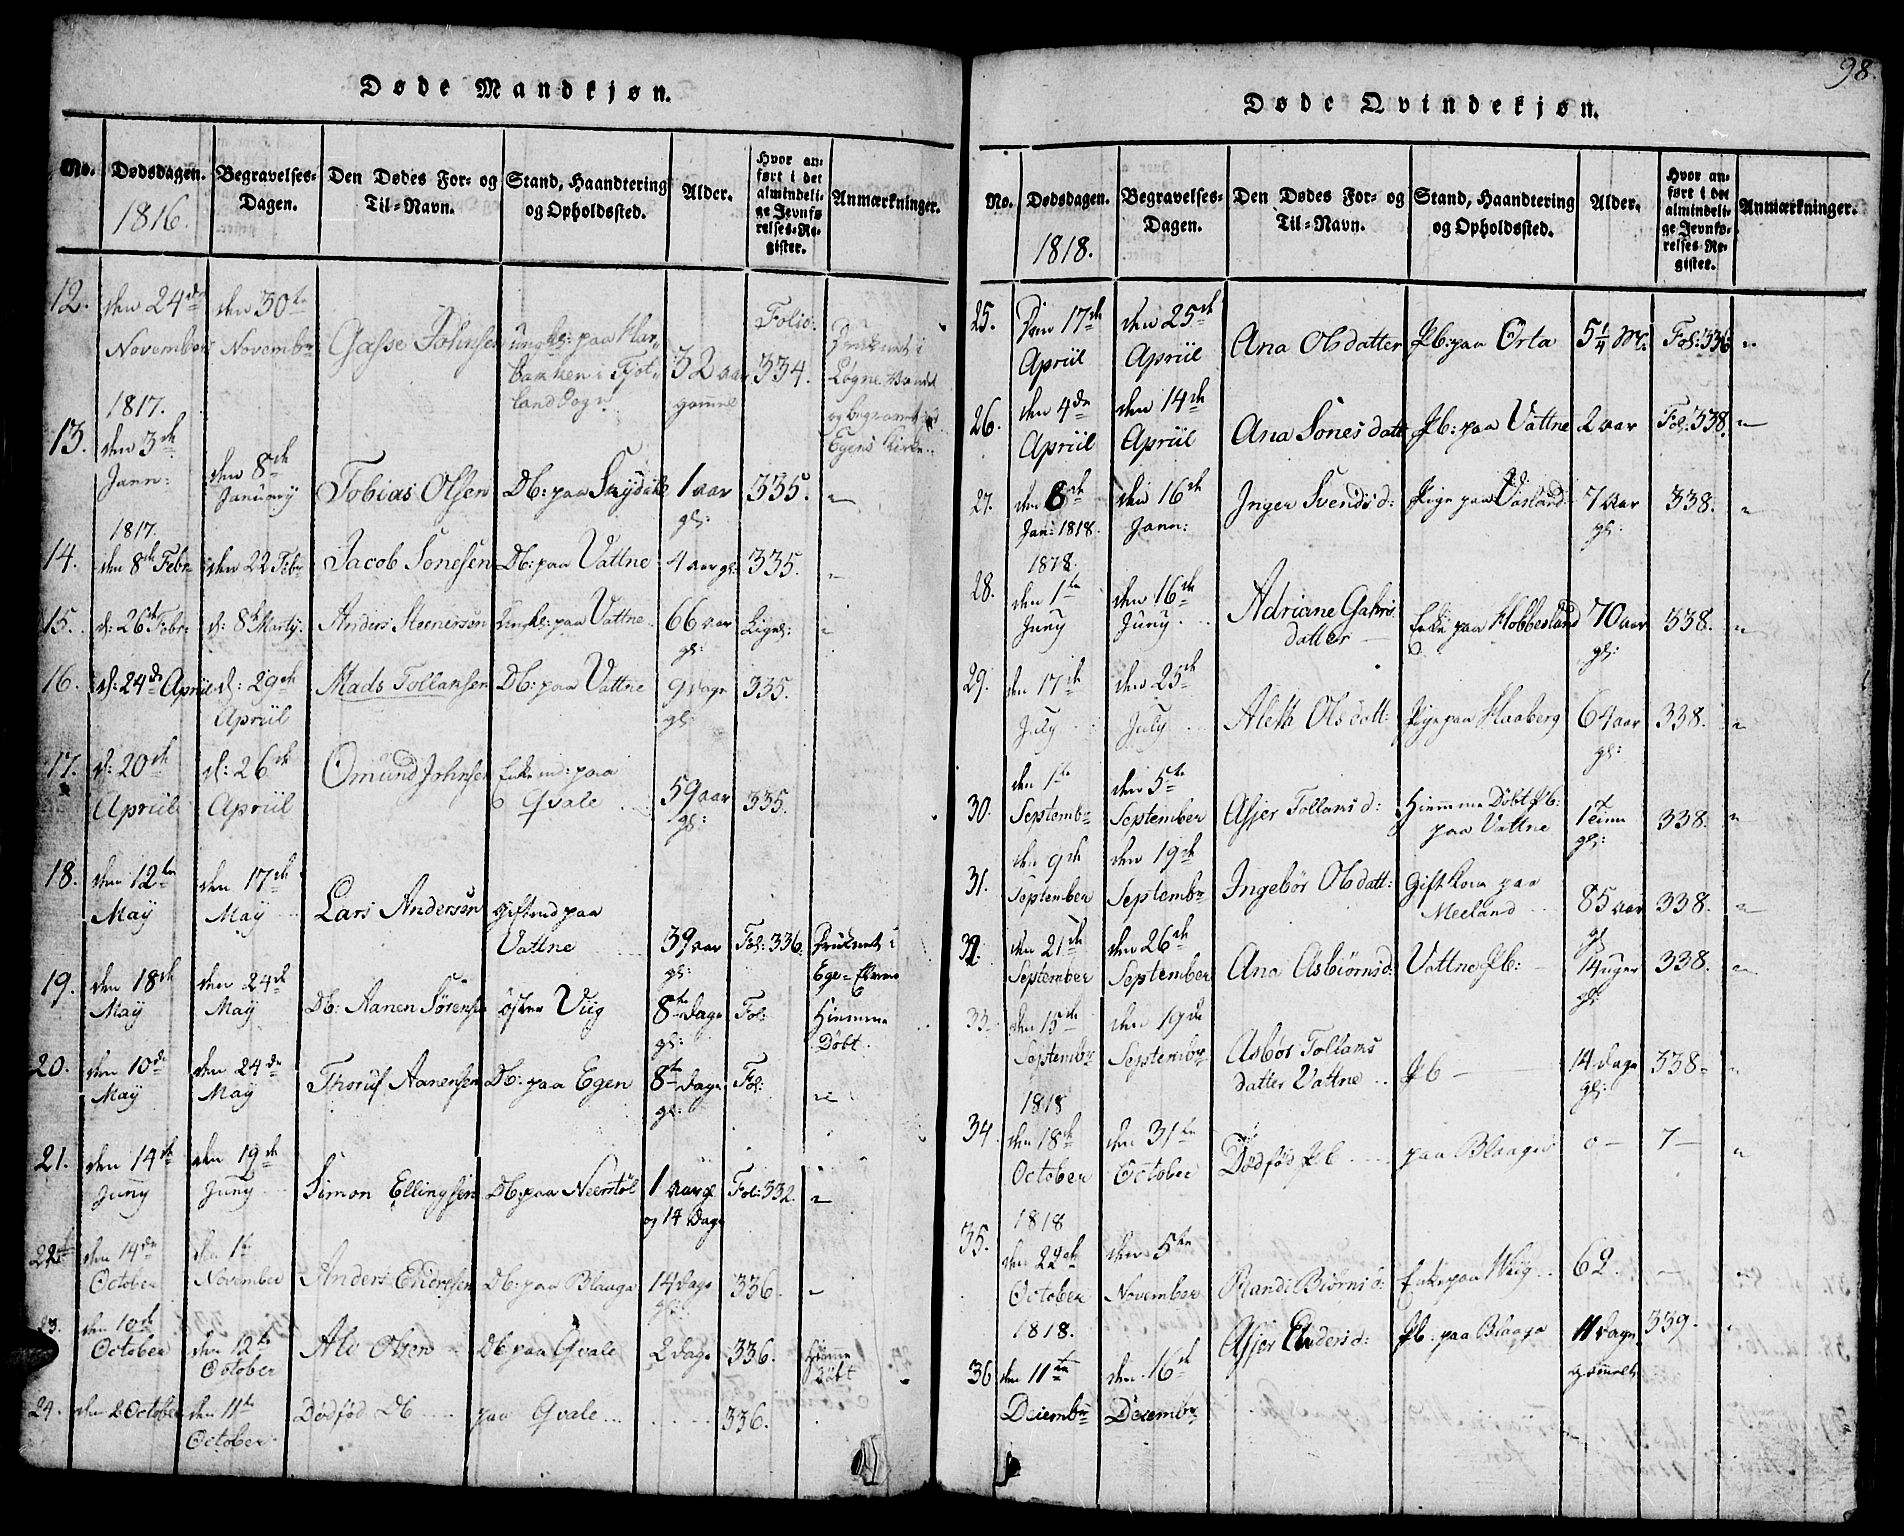 98.
Døde Mandkjøn.
No. Dødsdagen. 1816. Begravelses-Dagen. Den Dødes For- og Til-Navn. Stand, Haandtering og Opholdssted. Alder. Hvor anført i det almindelige Jevnførelses-Register. Anmærkninger.
12. den 24de November den 30te Novembr Gasse Johnsen paa i 32 aar gammel Folio: 334. Druknet i Logne Vandet og begravet Egens Kirke
1817.
13. den 3de Jann: den 8de January Tobias Olsen Db: paa 1 aar gl: 335. "
1817.
14. den 8de Febr den 22 Febr Jacob Sonesen Db: paa Vattne 4 aar gl: 335. "
15. d: 26de Febr: d: 8de Marty. Anders paa Vattne 66 aar gl: Lign: "
16. d: 24de Apriil d: 29de Apriil Mads Tollansen Db: paa Vattne 9 Dage gl: 335.
17. d: 20de Apriil d: 26de Apriil Omund Johnsen Enkemd: paa Qvale 59 aar gl: 335.
18. den 12te May den 17de May Lars Andersen giftmd paa Vattne 39 aar gl: Fol: 336. Druknet i Ege-Elven
19. den 18de May den 24de May Db: Aanen Sørensen Viig 8te Dage gl: Fol: Hiemme Døbt
20. den 10de May den 24de May Aanensen Db: paa Egen 8te Dage gl: Fol: "
21. den 14de Juny den 19de Juny Simon Ellingsen Db: paa Neerstøl 1 aar gl og 14 Dage Fol: 332. "
22. den 14de October den 1te November Anders Endresen Db: paa Blaaga 14 Dage gl: 336. "
23. den 10de October den 12te October Ole Olsen Db paa Qvale 2 Dage 336. Hiemme Døbt
24. den 2 October den 11te October Dødfød Db paa Qvale 336.
Døde Qvindekjøn.
No. Dødsdagen. 1818. Begravelses-Dagen. Den Dødes For- og Til-Navn. Stand, Haandtering og Opholdssted. Alder. Hvor anført i det almindelige Jevnførelses-Register. Anmærkninger.
25. Den 17de Apriil den 25de Apriil Ana Olsdatter Pb: paa Orta 5 1/4 Fol: 336 "
26. den 4de Apriil den 14de Apriil Ana Sones datt: Pb: paa Vattne 2 aar Fol: 338. "
27. den 8de Jan: 1818. den 16de Jann: Inger Svendsd: Pige paa 7 Aar gl: 338. "
1818.
28. den 1te Juny den 16de Juny Adriane datter Enke paa Hobbesland 70 aar gl: 338. "
29. den 17de July den 25de July Aleth Olsdatt: Pige paa Haaberg 64 aar gl: 338. "
30. den 1te Septembr den 5te September Asjer Tollansd: Hiemme Døbt Pb: paa Vattne 1 time gl: 338. "
31. den 9de September den 19de Septembr Ingebor Olsdatt: Gift Kone paa Meeland 85 aar gl 338. "
32. den 21de September den 26de September Ana Asbiørnsd: Vattne Pb: 14 uger gl: 338. "
33. den 15de Septembr den 19de Septembr Asbør Tollans datter Vattne Pb 14 Dage gl: 338. "
1818
34. den 18de October den 31te October Dødfød Pb paa Blaagen 0 7 "
1818
35. den 22de October den 5te November Randi Biørnsd: Enke paa Wiig 62. "
1818.
36 den 11te Decembr den 16de Decembr Asjer Endersd: Pb: paa Blaaga 11 Dage gammelt 339. "